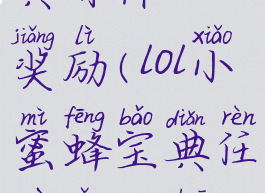 jiǎng lì xiǎo
奖励(lol小
mì fēng bǎo diǎn rèn
蜜蜂宝典任